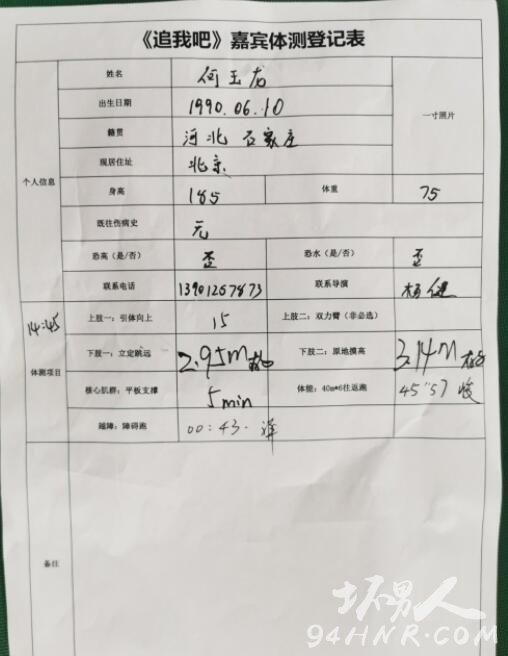 《追我吧》嘉宾体测登记表
个人信息
姓名 何玉龙 一寸照片
出生日期 1990.06.10
籍贯 河北 石家庄
现居住址 北京
身高 185 体重 75
既往伤病史 无
恐高（是/否） 否 恐水（是/否） 否
联系电话 13901267873 联系导演 杨健
14:45
体测项目
上肢一：引体向上 15 上肢二：双力臂（非必选）
下肢一：立定跳远 2.95m 下肢二：原地摸高 3.14m
核心肌群：平板支撑 5min 体能：40m*6往返跑 45"57
越障：障碍跑 00:43.
备注
坏男人
94HNR.COM